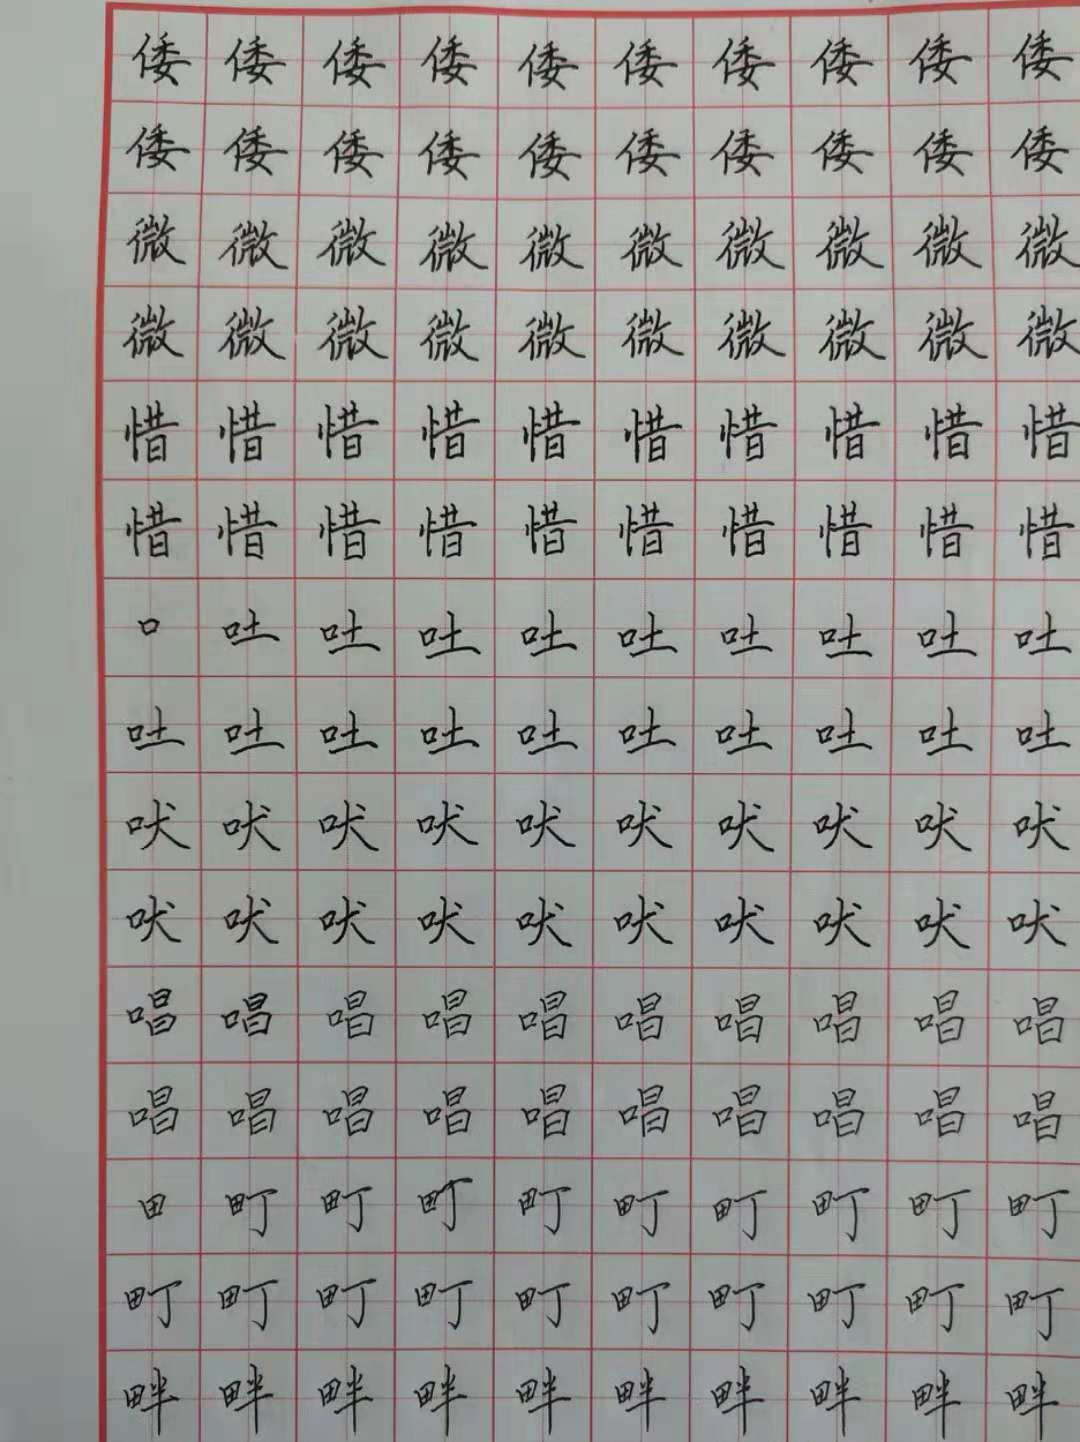 倭倭倭倭倭倭倭倭倭倭
倭倭倭倭倭倭倭倭倭倭
微微微微微微微微微微
微微微微微微微微微微
惜惜惜惜惜惜惜惜惜惜
惜惜惜惜惜惜惜惜惜惜
口吐吐吐吐吐吐吐吐吐
吐吐吐吐吐吐吐吐吐吐
吠吠吠吠吠吠吠吠吠吠
吠吠吠吠吠吠吠吠吠吠
唱唱唱唱唱唱唱唱唱唱
唱唱唱唱唱唱唱唱唱唱
田町町町町町町町町町
町町町町町町町町町町
畔畔畔畔畔畔畔畔畔畔